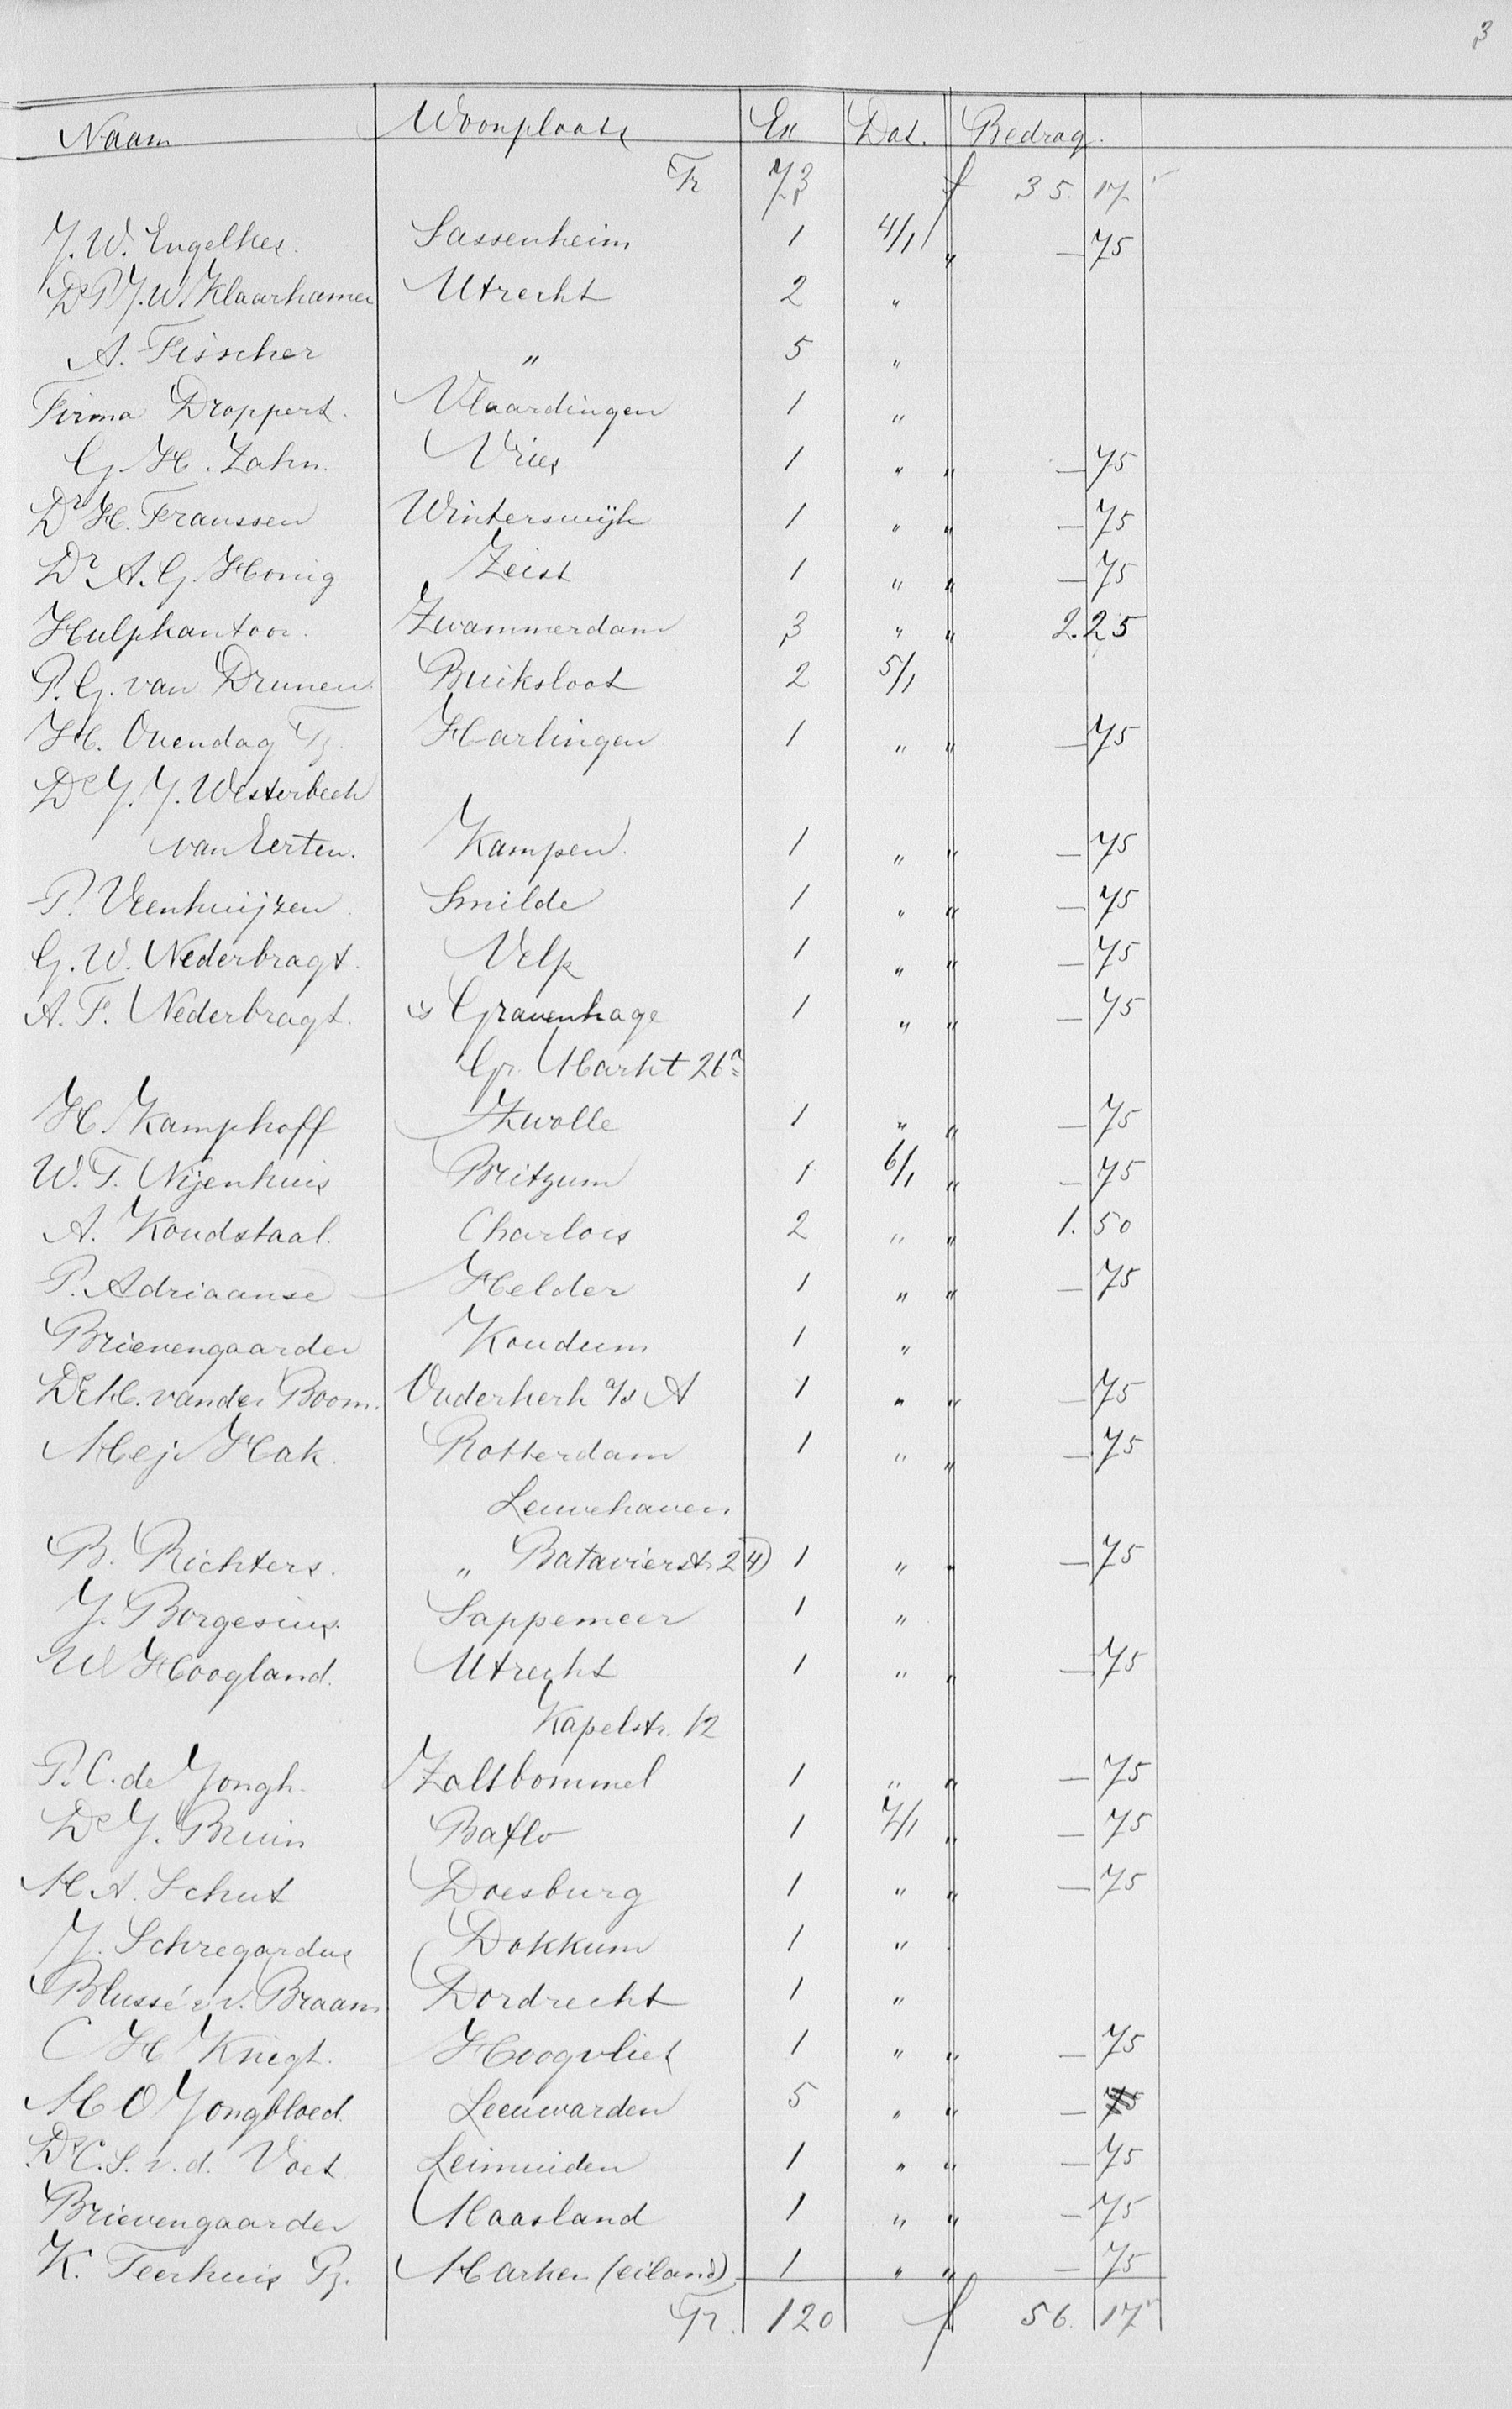 3
Naam Woonplaats Ex Dat. Bedrag.
Tr 73 f 35. 17
J. W. Engelkes. Sassenheim 1 4/1 " — 75
Ds P J. W. Klaarhamer Utrecht 2 "
A. Fisscher " 5 "
Firma Droppert. Vlaardingen 1 "
G. H. Zahn. Vries 1 " " — 75
Dr H. Franssen Winterswijk 1 " " — 75
Dr A. G. Honig Zeist 1 " " — 75
Hulpkantoor. Zwammerdam 3 " " 2. 25
P. G. van Drunen Buiksloot 2 5/1
H. Ouendag Tz. Harlingen 1 " " — 75
Ds J. J. Westerbeek
van Eerten. Kampen. 1 " " — 75
P. Veenhuijzen Smilde 1 " " — 75
G. W. Nederbragt. Velp 1 " " — 75
A. F. Nederbragt. 's Gravenhage 1 " " — 75
Gr. Markt 26a
H. Kamphoff Zwolle 1 " " — 75
W. T. Nijenhuis Britzum 1 6/1 " — 75
A. Koudstaal. Charlois 2 " " 1. 50
P. Adriaanse Helder 1 " " — 75
Brievengaarder Koudum 1 "
Ds H. van der Boom. Ouderkerk a/d A 1 " " — 75
Mej. Hak. Rotterdam 1 " " — 75
Leuvehaven
B. Richters. " Batavierstr. 24) 1 " " — 75
J. Borgesius. Sappemeer 1 "
W Hoogland. Utrecht 1 " " — 75
Kapelstr. 12
P. C. de Jongh. Zaltbommel 1 " " — 75
Ds J. Bruin Baflo 1 7/1 " — 75
M A. Schut Doesburg 1 " " — 75
J. Schregardus Dokkum 1 "
Blussé & v. Braam Dordrecht 1 "
C H Knegt. Hoogvliet 1 " " — 75
M O Jongbloed. Leeuwarden 5 " " — 75
Ds C. S. v. d. Voet Leimuiden 1 " " — 75
Brievengaarder Maasland 1 " " — 75
K. Teerhuis Pz. Marken (eiland) 1 " " — 75
Tr. 120 f 56. 17